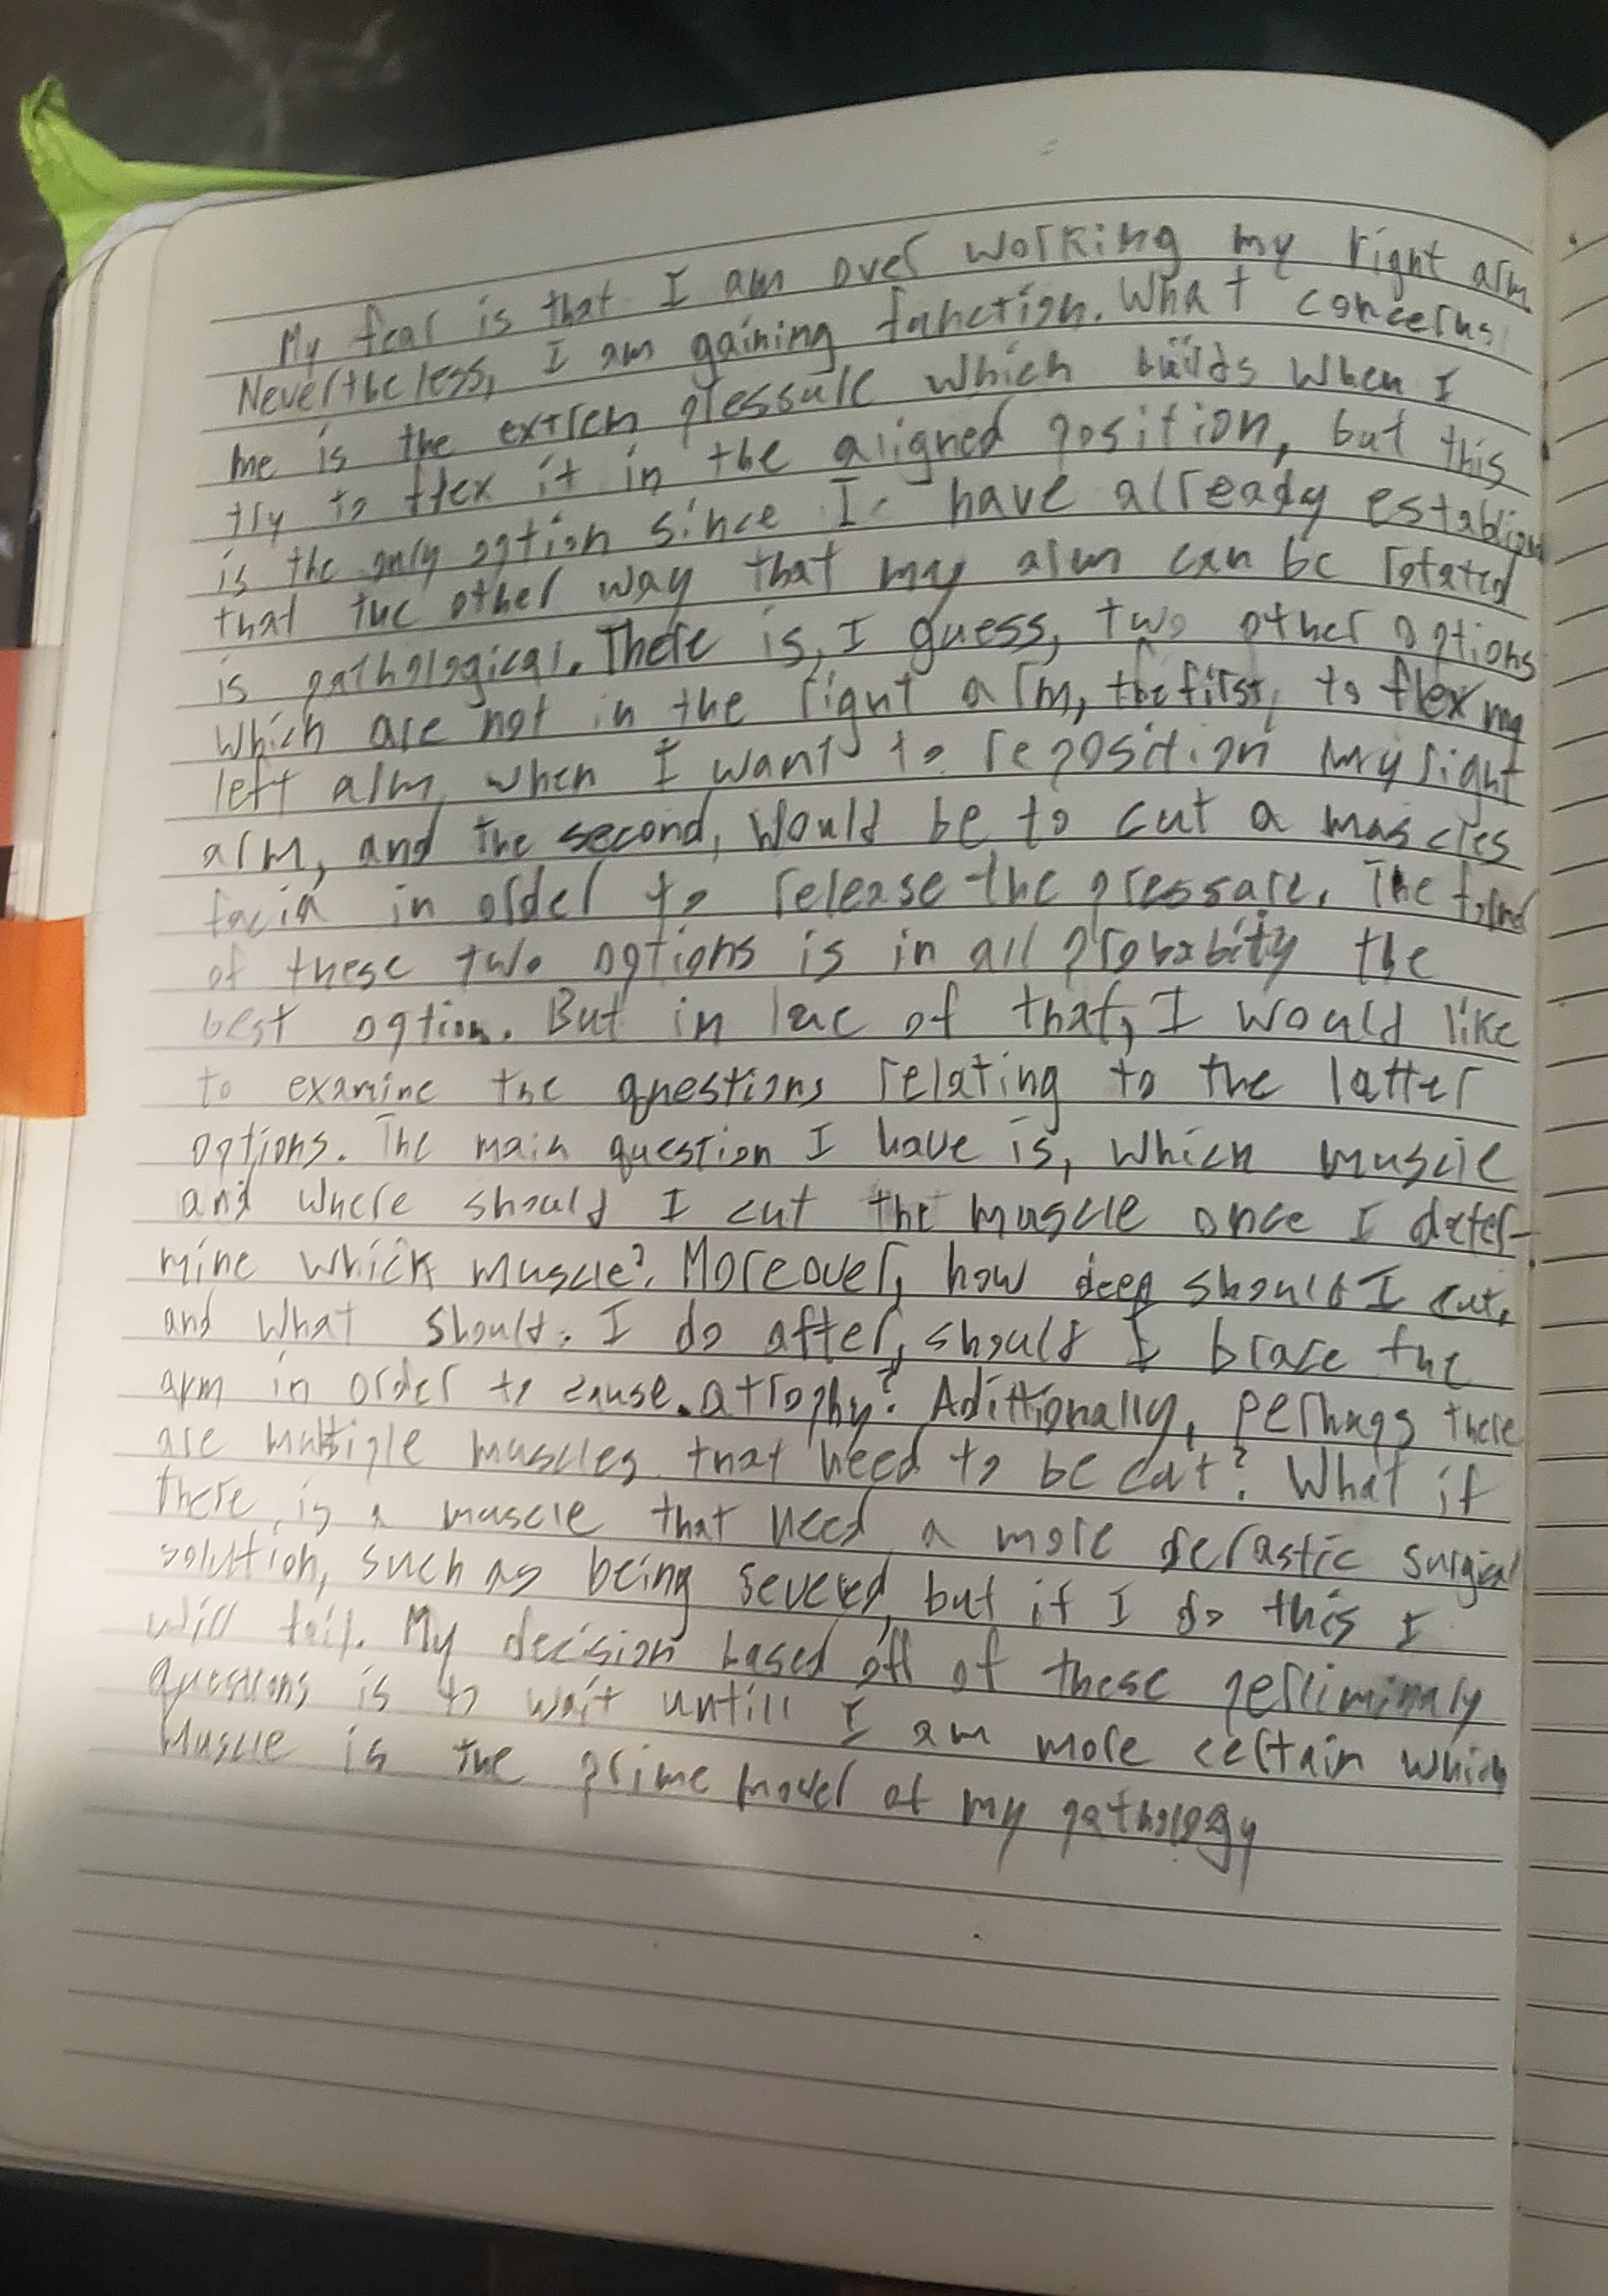 My fear is that I am over working my right arm
Nevertheless, I am gaining function. What concerns
me is the extrem pressure which builds when I
try to flex it in the aligned position, but this
is the only option since I have already establish
that the other way that my arm can be rotated
is pathological. There is, I guess, two other options
which are not in the right arm, the first, to flex my
left arm, when I want to reposition my right
arm, and the second, would be to cut a muscles
facia in order to release the pressure. The
of these two options is in all probabity the
best option. But in lac of that, I would like
to examine the questions relating to the latter
options. The main question I have is, which muscle
and where should I cut the muscle once I deter-
mine which muscle? Moreover, how deep should I cut,
and what should I do after, should I brace the
arm in order to cause atrophy? Adittionally, perhaps there
are multiple muscles that need to be cut? What if
there is a muscle that need a more derastic surgical
solution, such as being severed, but if I do this I
will fail. My decision based off of these perliminary
questions is to wait untill I am more certain which
muscle is the prime mover of my pathology